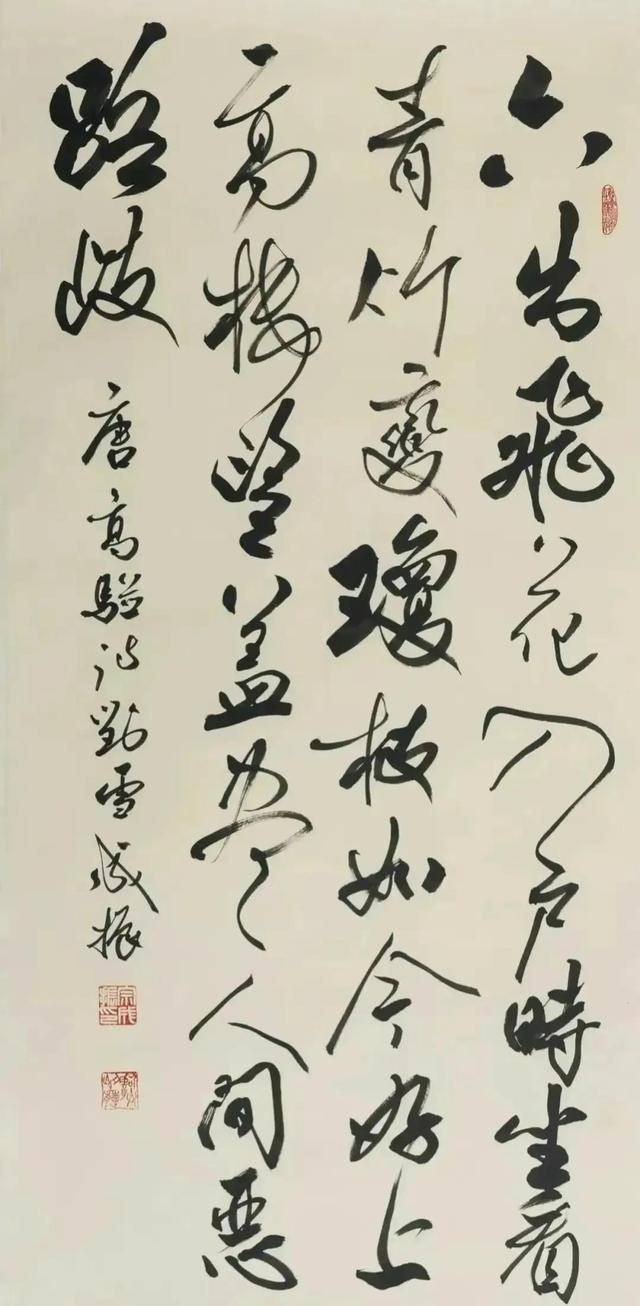 六出飛花入戶時坐看
青竹變瓊枝如今好上
高樓望蓋盡人間惡
路歧
唐高駢詩對雪成振
宗成振印